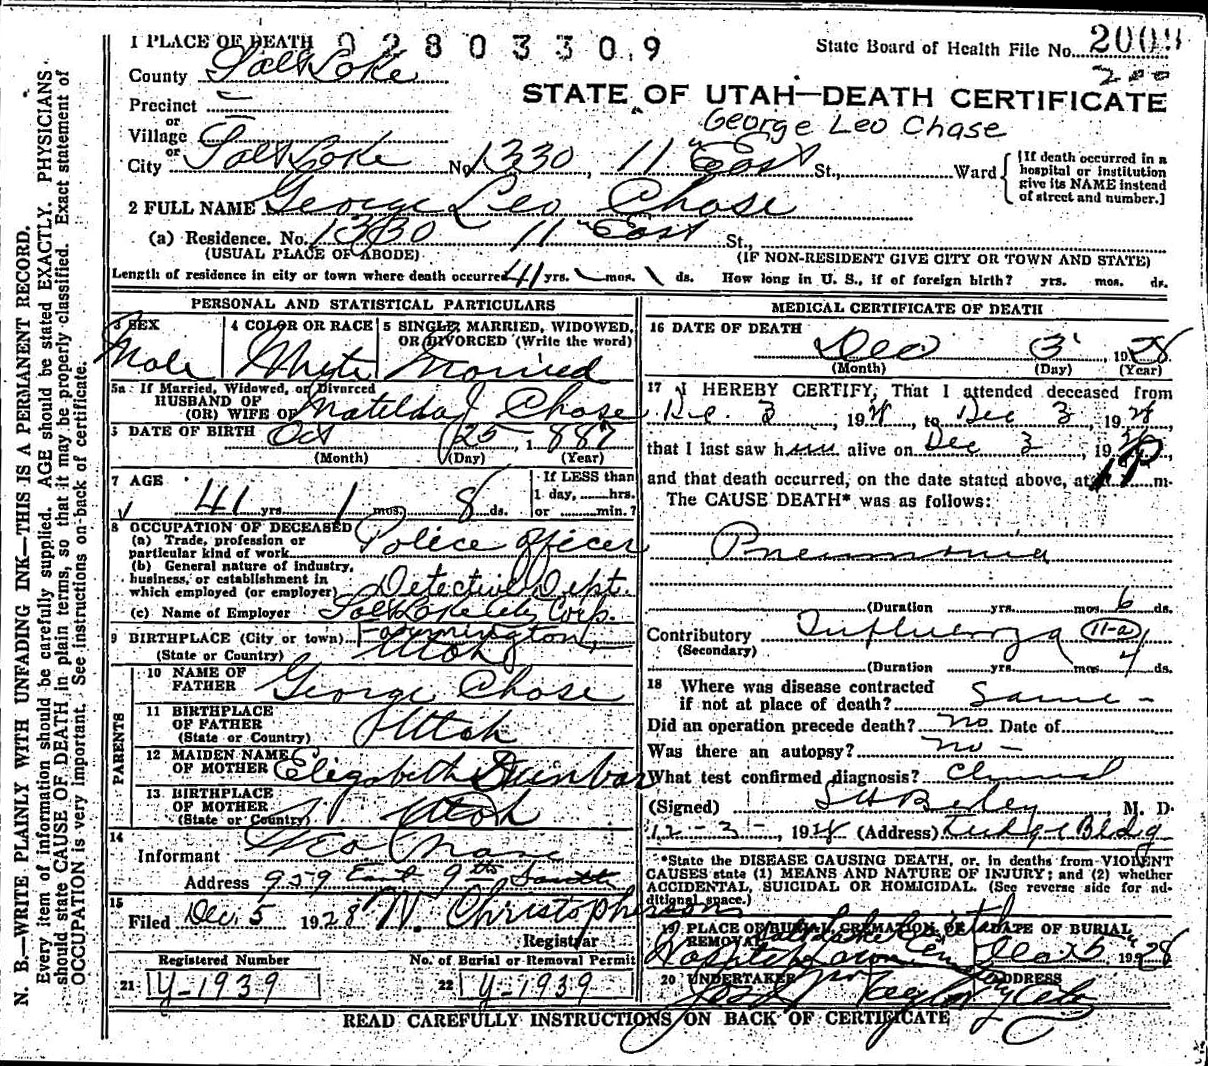 1 PLACE OF DEATH 0 2 8 0 3 3 0 9
State Board of Health File No. 2009
200
County Salt Lake
STATE OF UTAH—DEATH CERTIFICATE
Precinct
or
Village
George Leo Chase
or
City Salt Lake No. 1330, 11" East St., Ward
[If death occurred in a hospital or institution give its NAME instead of street and number.]
2 FULL NAME George Leo Chase
(a) Residence. No. 1330 11" East St.,
(USUAL PLACE OF ABODE) (IF NON-RESIDENT GIVE CITY OR TOWN AND STATE)
Length of residence in city or town where death occurred 41 yrs. mos. ds. How long in U. S., if of foreign birth? yrs. mos. ds.
PERSONAL AND STATISTICAL PARTICULARS
3 SEX 4 COLOR OR RACE 5 SINGLE, MARRIED, WIDOWED,
OR DIVORCED (Write the word)
Male White Married
5a If Married, Widowed, or Divorced
HUSBAND OF
(OR) WIFE OF Matilda J Chase
DATE OF BIRTH Oct 25, 1887
(Month) (Day) (Year)
7 AGE If LESS than
41 yrs. 1 mos. 8 ds. 1 day, hrs.
or min.?
8 OCCUPATION OF DECEASED
(a) Trade, profession or
particular kind of work Police Officer
(b) General nature of industry,
business, or establishment in
which employed (or employer) Detective Dept.
(c) Name of Employer Salt Lake City Corp.
9 BIRTHPLACE (City or town) Farmington,
(State or Country) Utah
PARENTS
10 NAME OF
FATHER George Chase
11 BIRTHPLACE
OF FATHER
(State or Country) Utah
12 MAIDEN NAME
OF MOTHER Elizabeth Dunbar
13 BIRTHPLACE
OF MOTHER
(State or Country) Utah
14
Informant Geo Chase
Address 959 East 9th South
15
Filed Dec. 5 1928 N. Christopherson
Registrar
Registered Number No. of Burial or Removal Permit
21 Y-1939 22 Y-1939
MEDICAL CERTIFICATE OF DEATH
16 DATE OF DEATH
Dec 3, 1928
(Month) (Day) (Year)
17 I HEREBY CERTIFY, That I attended deceased from
Dec. 3, 1928, to Dec 3, 1928
that I last saw him alive on Dec 3, 1928,
and that death occurred, on the date stated above, at 1 P m.
The CAUSE DEATH* was as follows:
Pneumonia
(Duration yrs. mos. 6 ds.
Contributory Influenza 11-a
(Secondary)
(Duration yrs. mos. ds.
18 Where was disease contracted
if not at place of death? Same -
Did an operation precede death? no Date of
Was there an autopsy? no -
What test confirmed diagnosis? Clinical
(Signed) M. D.
12-3-, 1928 (Address) Judge Bldg
*State the DISEASE CAUSING DEATH, or, in deaths from VIOLENT
CAUSES state (1) MEANS AND NATURE OF INJURY; and (2) whether
ACCIDENTAL, SUICIDAL OR HOMICIDAL. (See reverse side for ad-
ditional space.)
19 PLACE OF BURIAL, CREMATION, OR DATE OF BURIAL
REMOVAL Salt Lake Dec 5" 1928
20 UNDERTAKER ADDRESS
READ CAREFULLY INSTRUCTIONS ON BACK OF CERTIFICATE
N. B.—WRITE PLAINLY WITH UNFADING INK—THIS IS A PERMANENT RECORD.
Every item of information should be carefully supplied. AGE should be stated EXACTLY. PHYSICIANS
should state CAUSE OF DEATH in plain terms, so that it may be properly classified. Exact statement of
OCCUPATION is very important. See instructions on back of certificate.